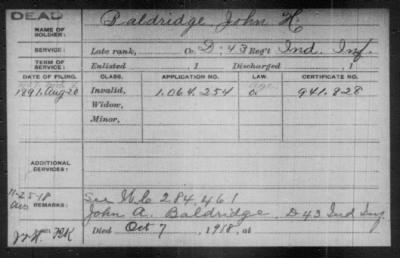 DEAD
NAME OF SOLDIER: Baldridge, John H.
SERVICE: Late rank, Co. D, 43 Reg't Ind. Inf.
TERM OF SERVICE: Enlisted , 1 Discharged , 1
DATE OF FILING. CLASS. APPLICATION NO. LAW. CERTIFICATE NO.
1891, Aug-20 Invalid, 1.064.254 941.828
Widow,
Minor,
ADDITIONAL SERVICES:
11-25-18
REMARKS: See W.C. 284.461
John A. Baldridge, D 43 Ind Inf
Died Oct 7, 1918, at